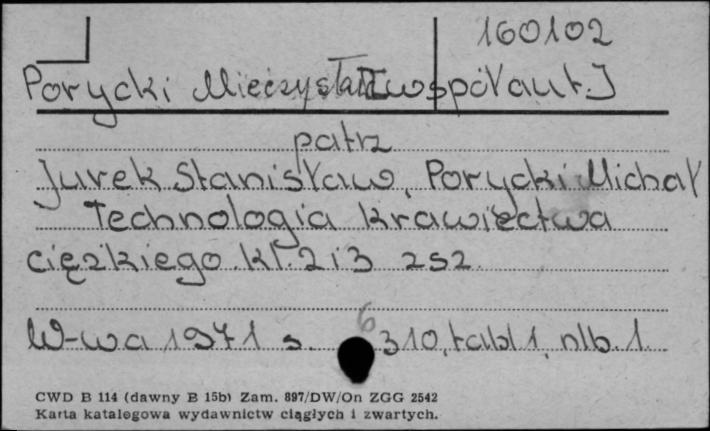 160102
Porycki Mieczysław [współaut.]
patrz
Jurek Stanisław, Porycki Michał
Technologia krawiectwa
ciężkiego kl. 2 i 3 zsz
W-wa 1971 s. 310, tabl 1, nlb. 1.
6
CWD B 114 (dawny B 15b) Zam. 897/DW/On ZGG 2542
Karta katalogowa wydawnictw ciągłych i zwartych.